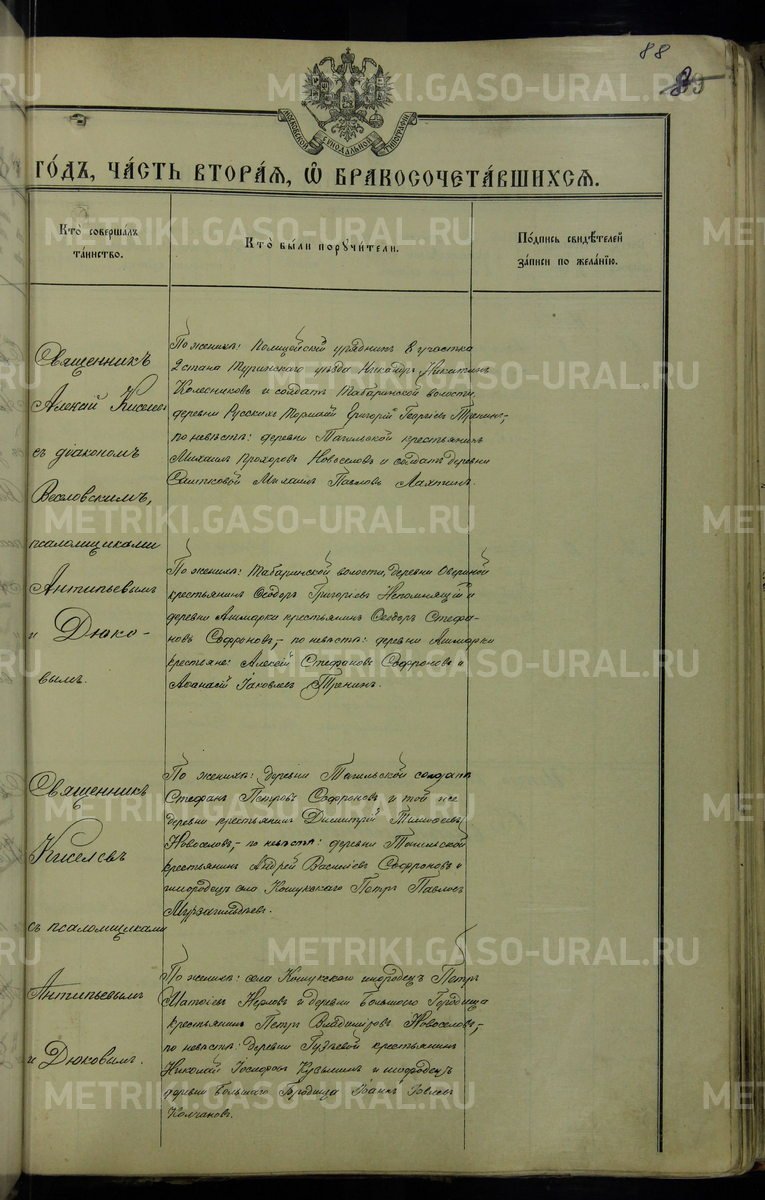 88
89
МОСКОВСКОЙ СѴНОДАЛЬНОЙ ТИПОГРАФІИ
ГО́ДЪ, ЧА́СТЬ ВТОРА́Я, Ѡ҆ БРАКОСОЧЕТА́ВШИХСѦ.
Кто̀ соверша́лъ та́инство.
Кто̀ бы́ли порꙋчи́тели.
По́дпись свидѣ́телей за́писи по жела́нїю.
Священникъ
Алексій Киселев
съ діакономъ
Веселовскимъ,
псаломщиками
Антипьевымъ
и Дюко-
вымъ.
По женихѣ: Полицейскій урядникъ 8 участка
2 стана Туринскаго уѣзда Никандръ Никитинъ
Колесниковъ и солдатъ Табаринской волости,
деревни Русскихъ Григорій Георгіевъ Тренинъ,-
по невѣстѣ: деревни Тагильской крестьянинъ
Михаилъ Прохоровъ Новоселовъ и солдатъ деревни
Михаилъ Павловъ Лахтинъ.
По женихѣ: Табаринской волости, деревни Овериной
крестьянинъ Ѳеодоръ Григорьевъ Непомнящій и
деревни Ашмарки крестьянинъ Ѳеодоръ Стефа-
новъ Софроновъ,- по невѣстѣ: деревни Ашмарки
крестьяне: Алексій Стефановъ Софроновъ и
Аѳанасій Іаковлевъ Тренинъ.
Священникъ
Киселевъ
съ псаломщиками
Антипьевымъ
и Дюковымъ.
По женихѣ: деревни Тагильской солдатъ
Стефанъ Петровъ Софроновъ и той же
деревни крестьянинъ Димитрій Тимофеевъ
Новоселовъ,- по невѣстѣ: деревни Тагильской
крестьянинъ Андрей Васильевъ Софроновъ и
инородецъ села Кошукскаго Петръ Павловъ
Мурзагильдѣевъ.
По женихѣ: села Кошукскаго инородецъ Петръ
Матѳіевъ Нерловъ и деревни Большого Городища
крестьянинъ Петръ Владиміровъ Новоселовъ,-
по невѣстѣ: деревни Гузѣевой крестьянинъ
Николай Кузьминъ и инородецъ
деревни Большаго Городища Іоаннъ Іовлевъ
Колчановъ.
METRIKI.GASO-URAL.RU